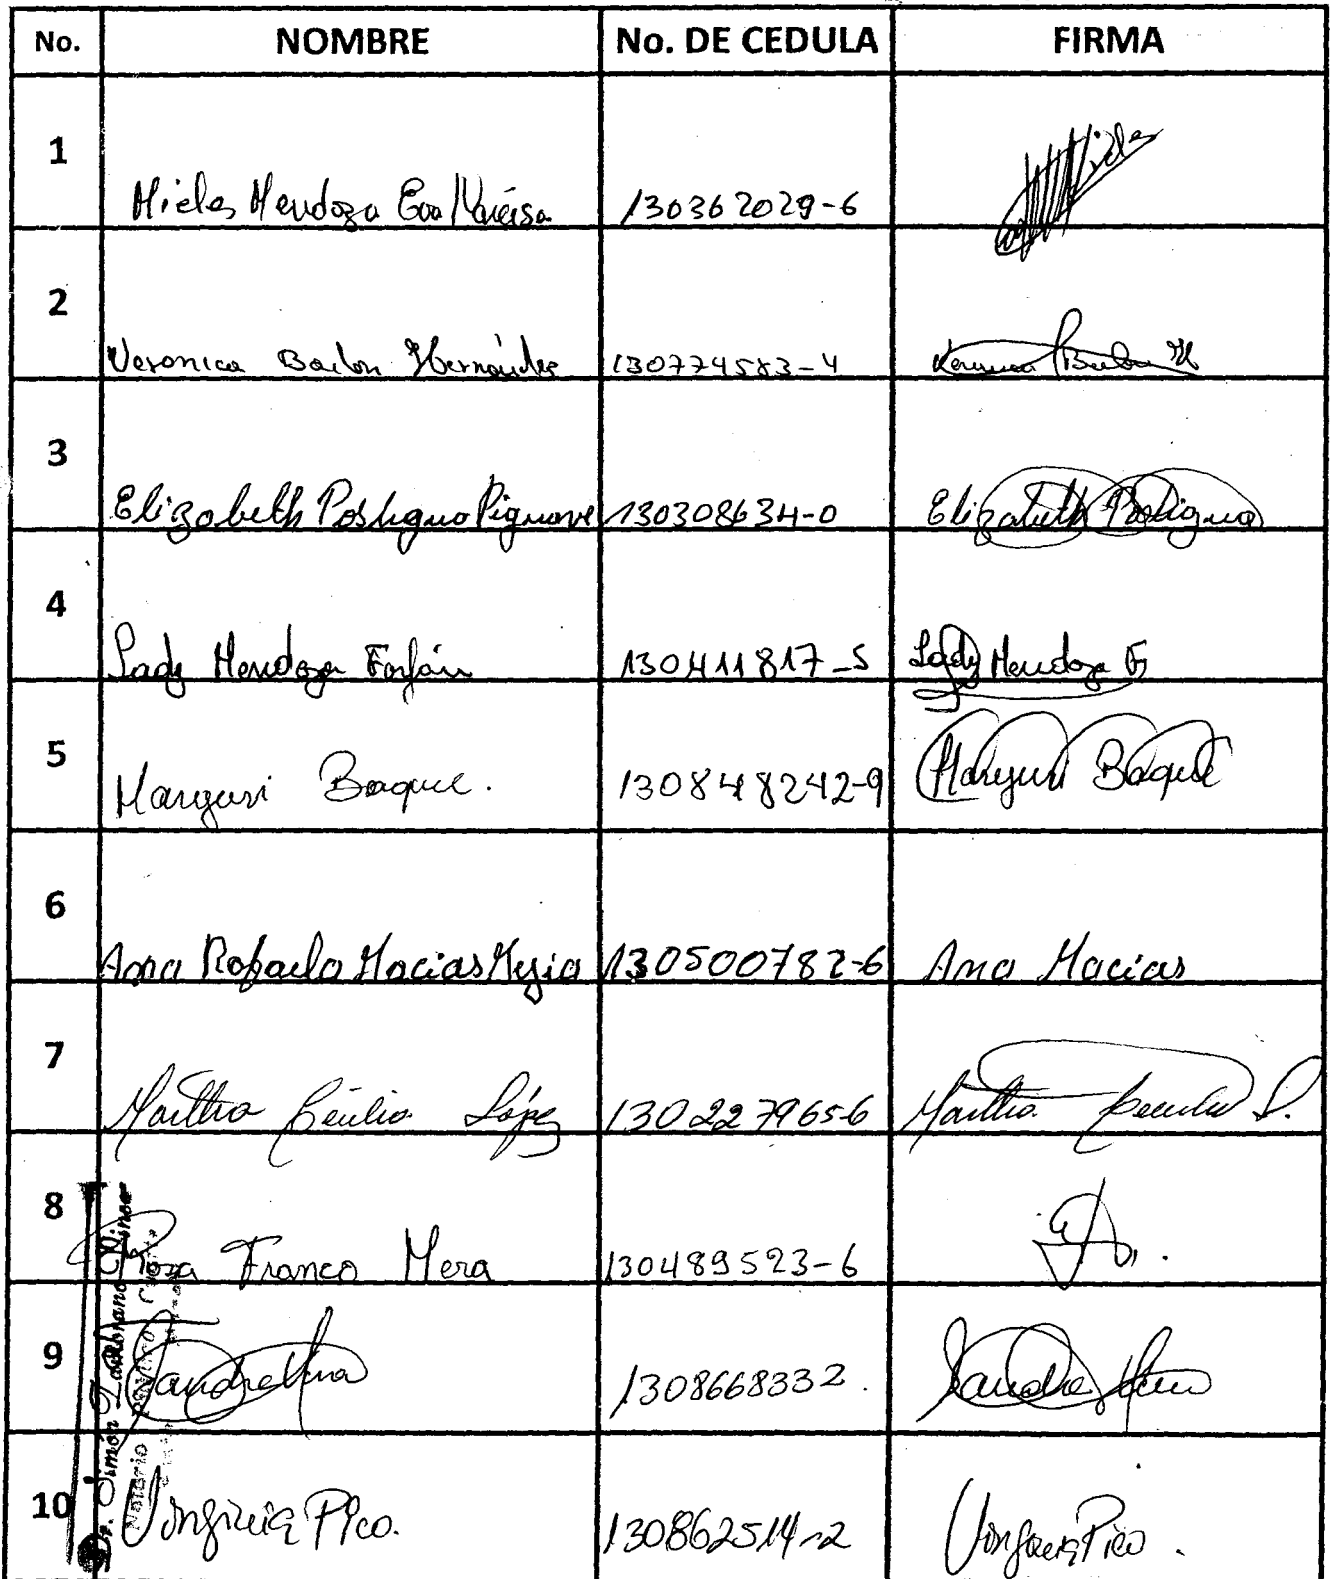 No. NOMBRE No. DE CEDULA FIRMA
1 Mieles Mendoza Eva Narcisa 130362029-6 Mieles
2 Veronica Bailon Hernández 130774583-4
3 Elizabeth Posligua Pigüave 130308634-0 Elizabeth Posligua
4 Lady Mendoza Farfán 130411817-5 Lady Mendoza F
5 Maryuri Baque. 130848242-9 Maryuri Baque
6 Ana Rafaela Macias Mejia 130500782-6 Ana Macías
7 Martha Cecilia López 130227965-6 Martha Cecilia L.
8 Rosa Franco Mera 130489523-6
9 Sandra Mera 1308668332. Sandra Mera
10 Virginia Pico. 130862514-2 Virginia Pico.
Dr. Simón Zambrano Vinces
Notario